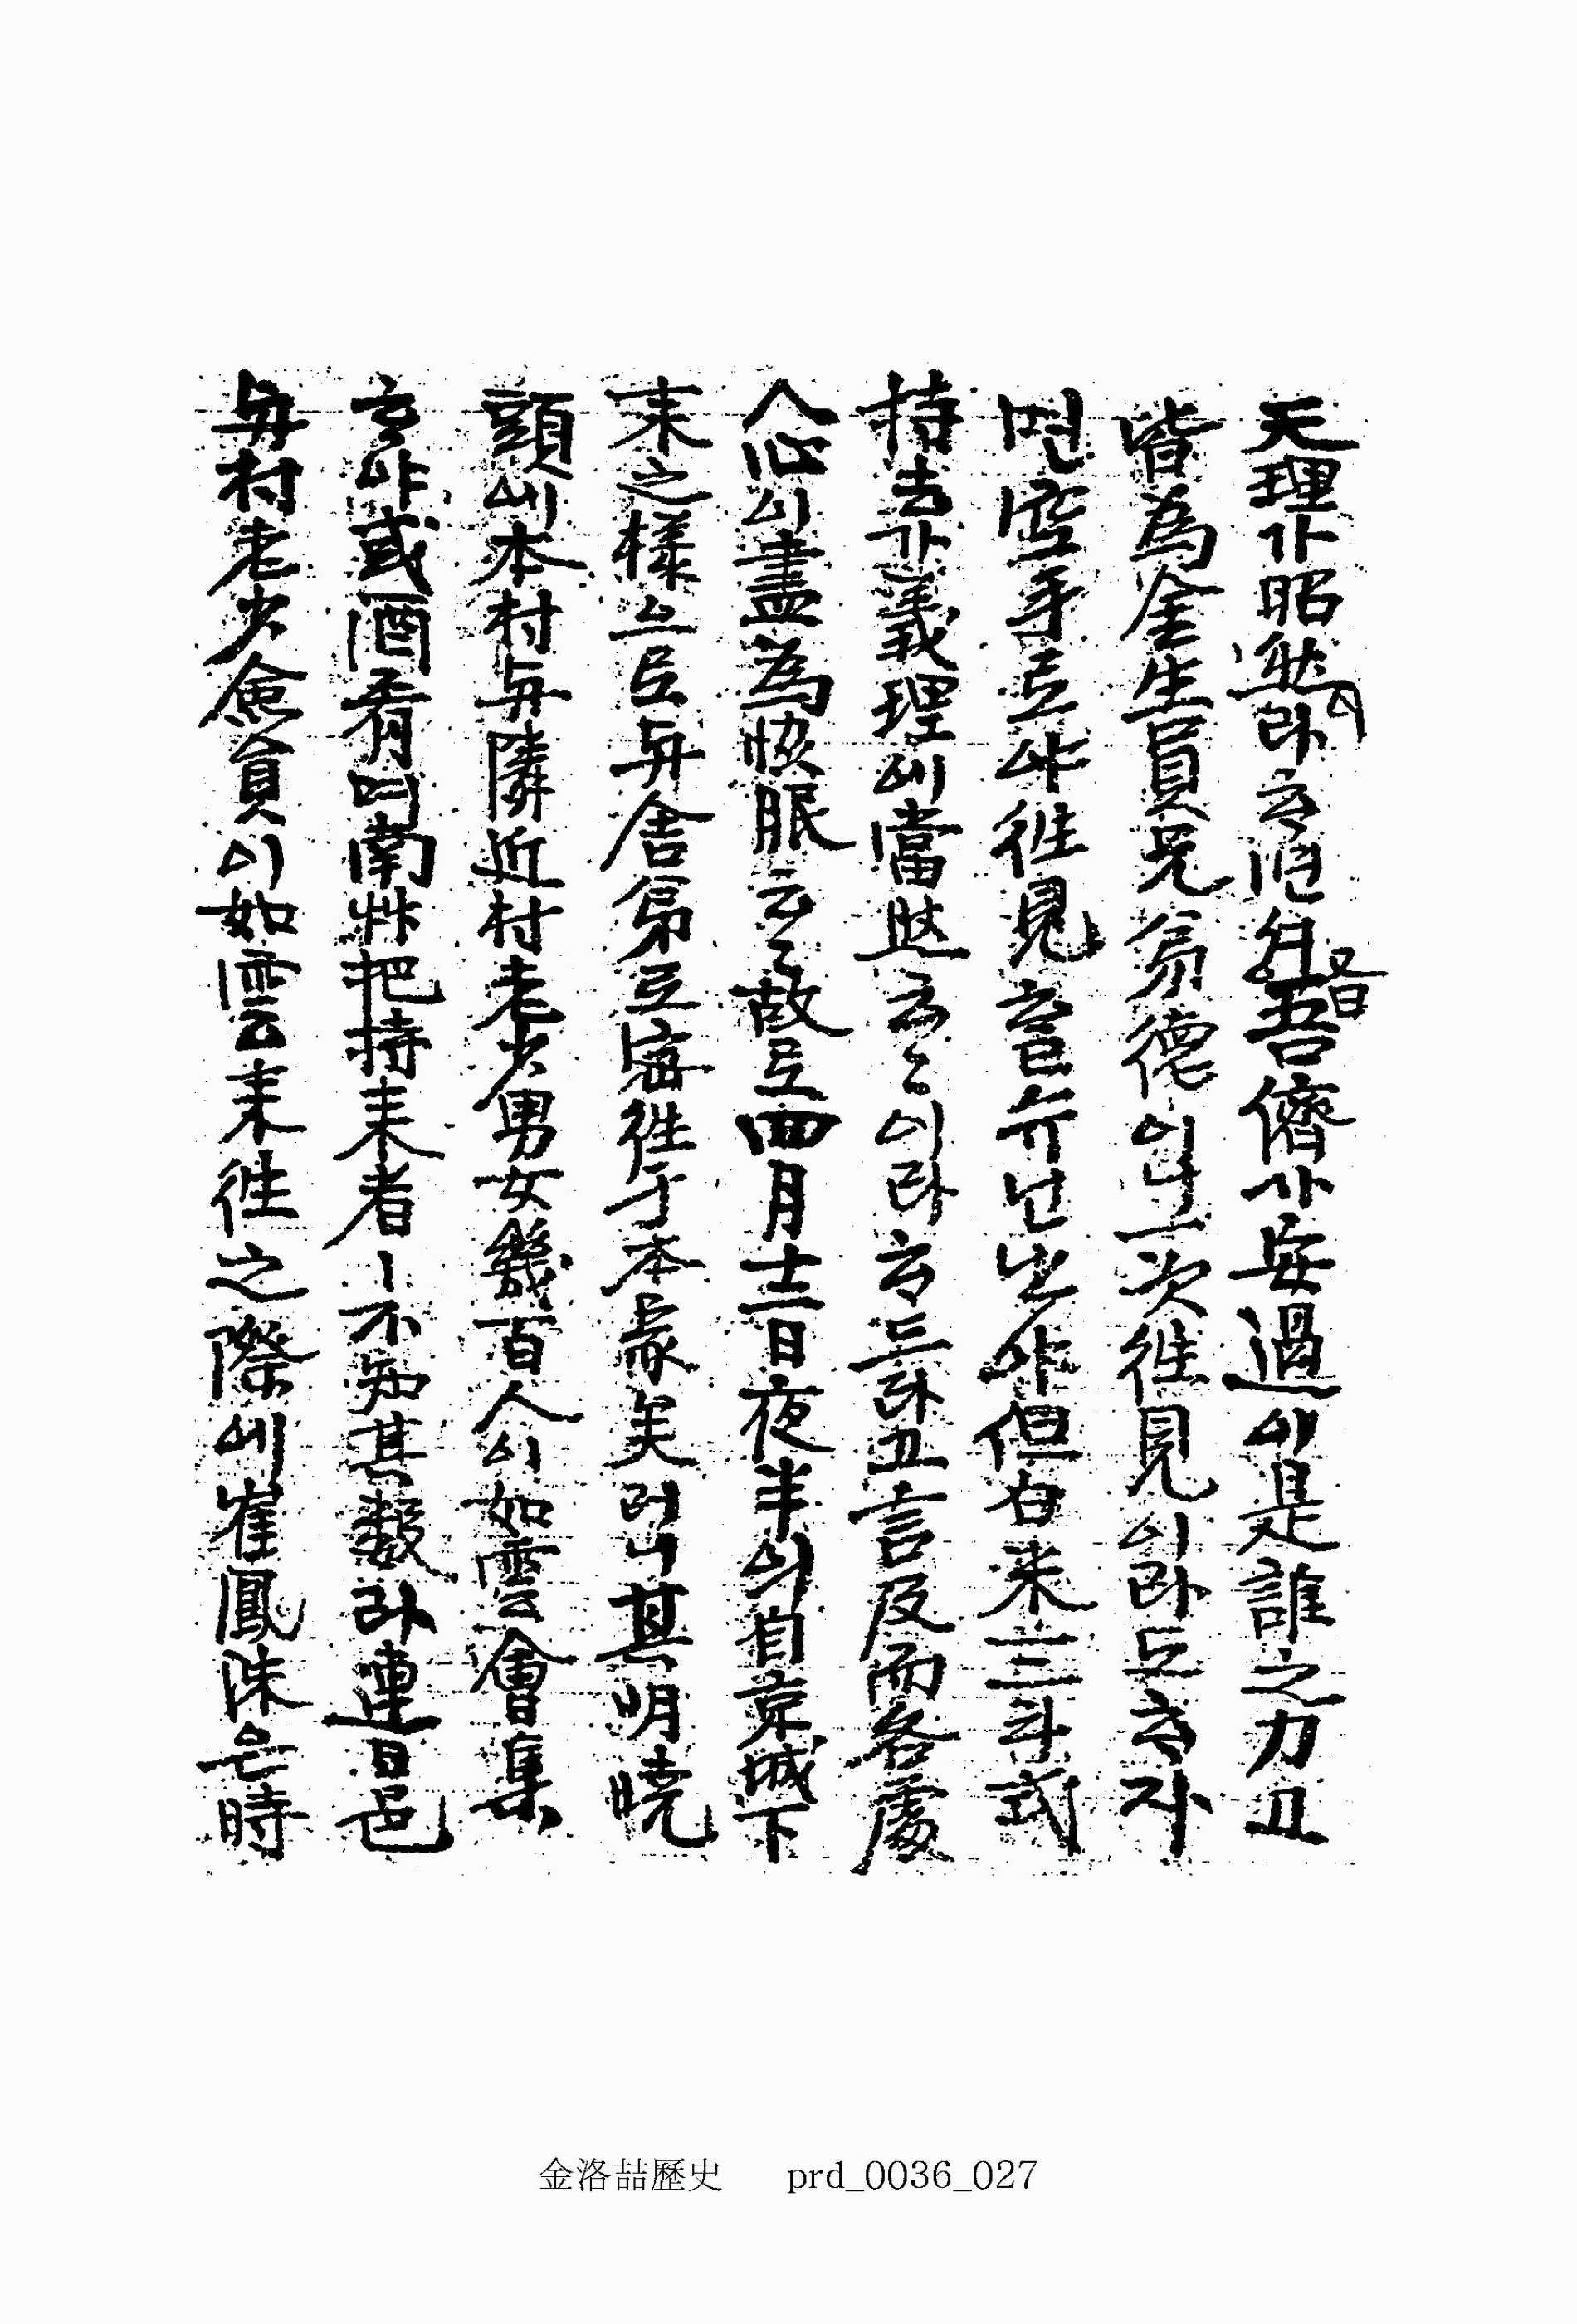 天理가昭然라亽면 吾儕가安過이是誰之力고
皆為金生員兄弟德이니一次往見이라도亽자
면空手로야往見亽音누난야但白米三斗式
持去가義理에當然云云이라亽드라고言及而各處
人心이盡為恢眠云云故로四月十二日夜半의自京城下
来之樣으로與舍弟로密往于本家矣러니其明曉
頭에本村與隣近村老少男女幾百人이如雲會集
亽야或酒肴며南草把持来者ㅣ不知其數라連日邑
與村老少僉員이如雲来往之際에崔鳳洙은時
金洛喆歷史 prd_0036_027